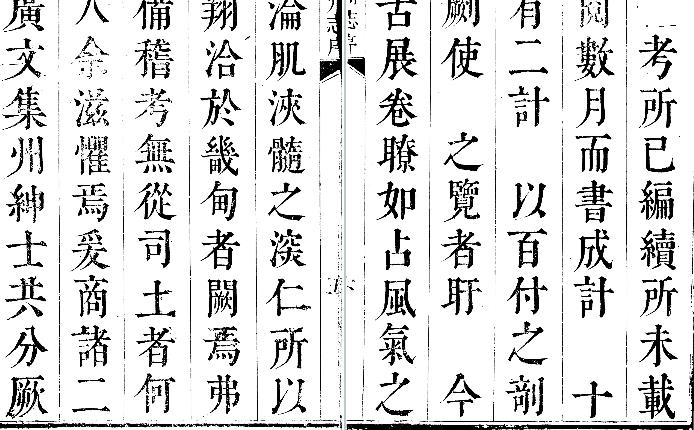 考所已編續所未載
閱數月而書成計　十
有二計　以百付之剞
劂使　之覽者盱　今
古展卷瞭如占風氣之
志序
淪肌浹髓之深仁所以
翔洽於畿甸者闕焉弗
備稽考無從司土者何
人余滋懼焉爰商諸二
廣文集州紳士共分厥